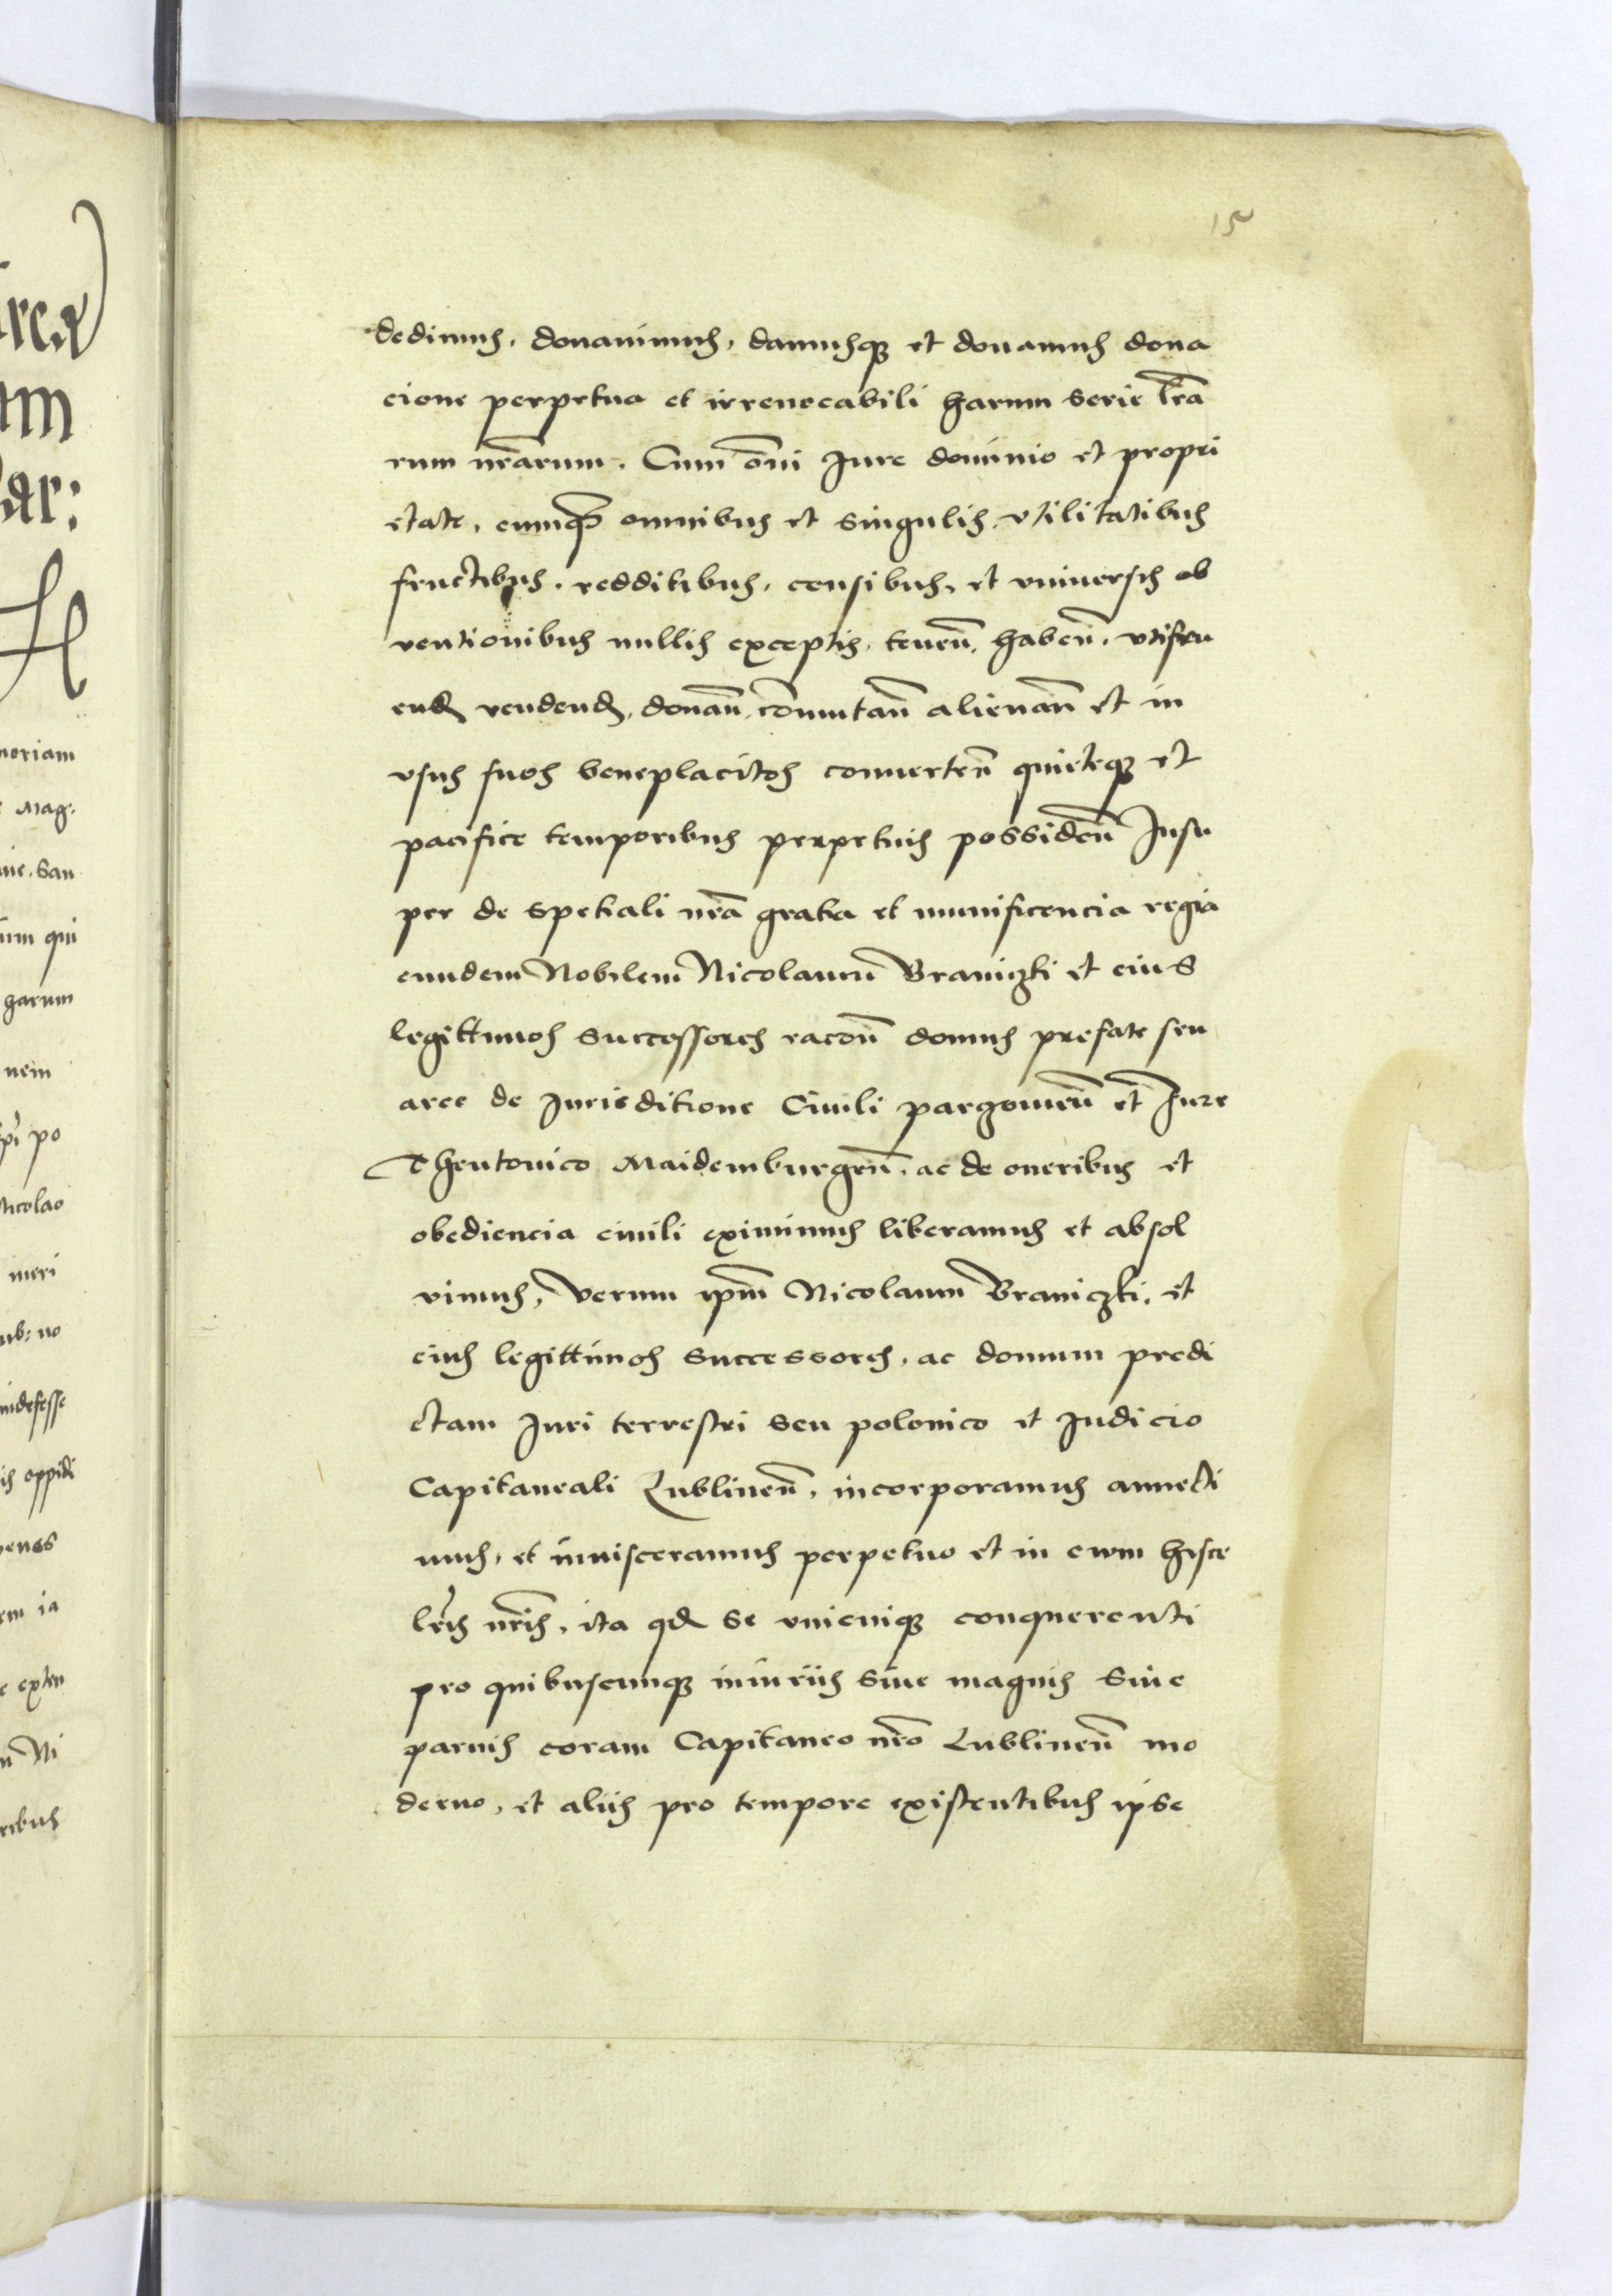 15
dedimus, donavimus, damusque et donamus dona
cione perpetua et irrevocabili harum serie lr̄a
rum nr̄arum. Cum om̄i Jure dominio et propri
etate, cumqȝ omnibus et singulis, vtilitatibus
fructibus, redditibus, censibus, et vniversis ob
ventionibus nullis exceptis, tenen̄, haben̄, vtifru
end, vendend, donan̄, com̄utan̄ alienan̄ et in
vsus suos beneplacitos converten̄ quieteqȝ et
pacifice temporibus perpetuis possiden̄ Insu
per de spetiali nr̄a gratia et munificencia regia
eundem Nobilem Nicolaum Braniczki et eius
legittimos successores racōn̄ domus prefate seu
aree de Jurisditione Civili pargomen̄ et Jure
Theutonico Maidemburgen̄, ac de oneribus et
obediencia civili eximimus liberamus et absol
vimus, Verum ip̄m Nicolaum Braniczki, et
eius legittimos successores, ac domum predi
ctam Juri terrestri seu polonico et Judicio
Capitaneali Lublinen̄, incorporamus annecti
mus, et invisceramus perpetuo et in evum hisce
lr̄is nr̄is, ita qd se vnicuiqȝ conquerenti
pro quibuscunqȝ iniuriis sive magnis sive
parvis coram Capitaneo nr̄o Lublinen̄ mo
derno, et aliis pro tempore existentibus ipse